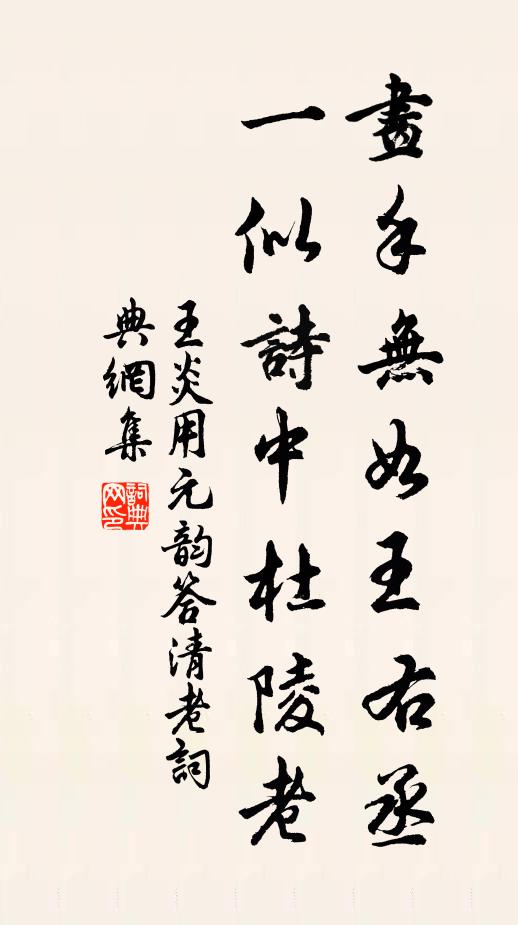 畫手無如王右丞
一似詩中杜陵老
王炎用元韵答清老詞
典網集
詞典网印